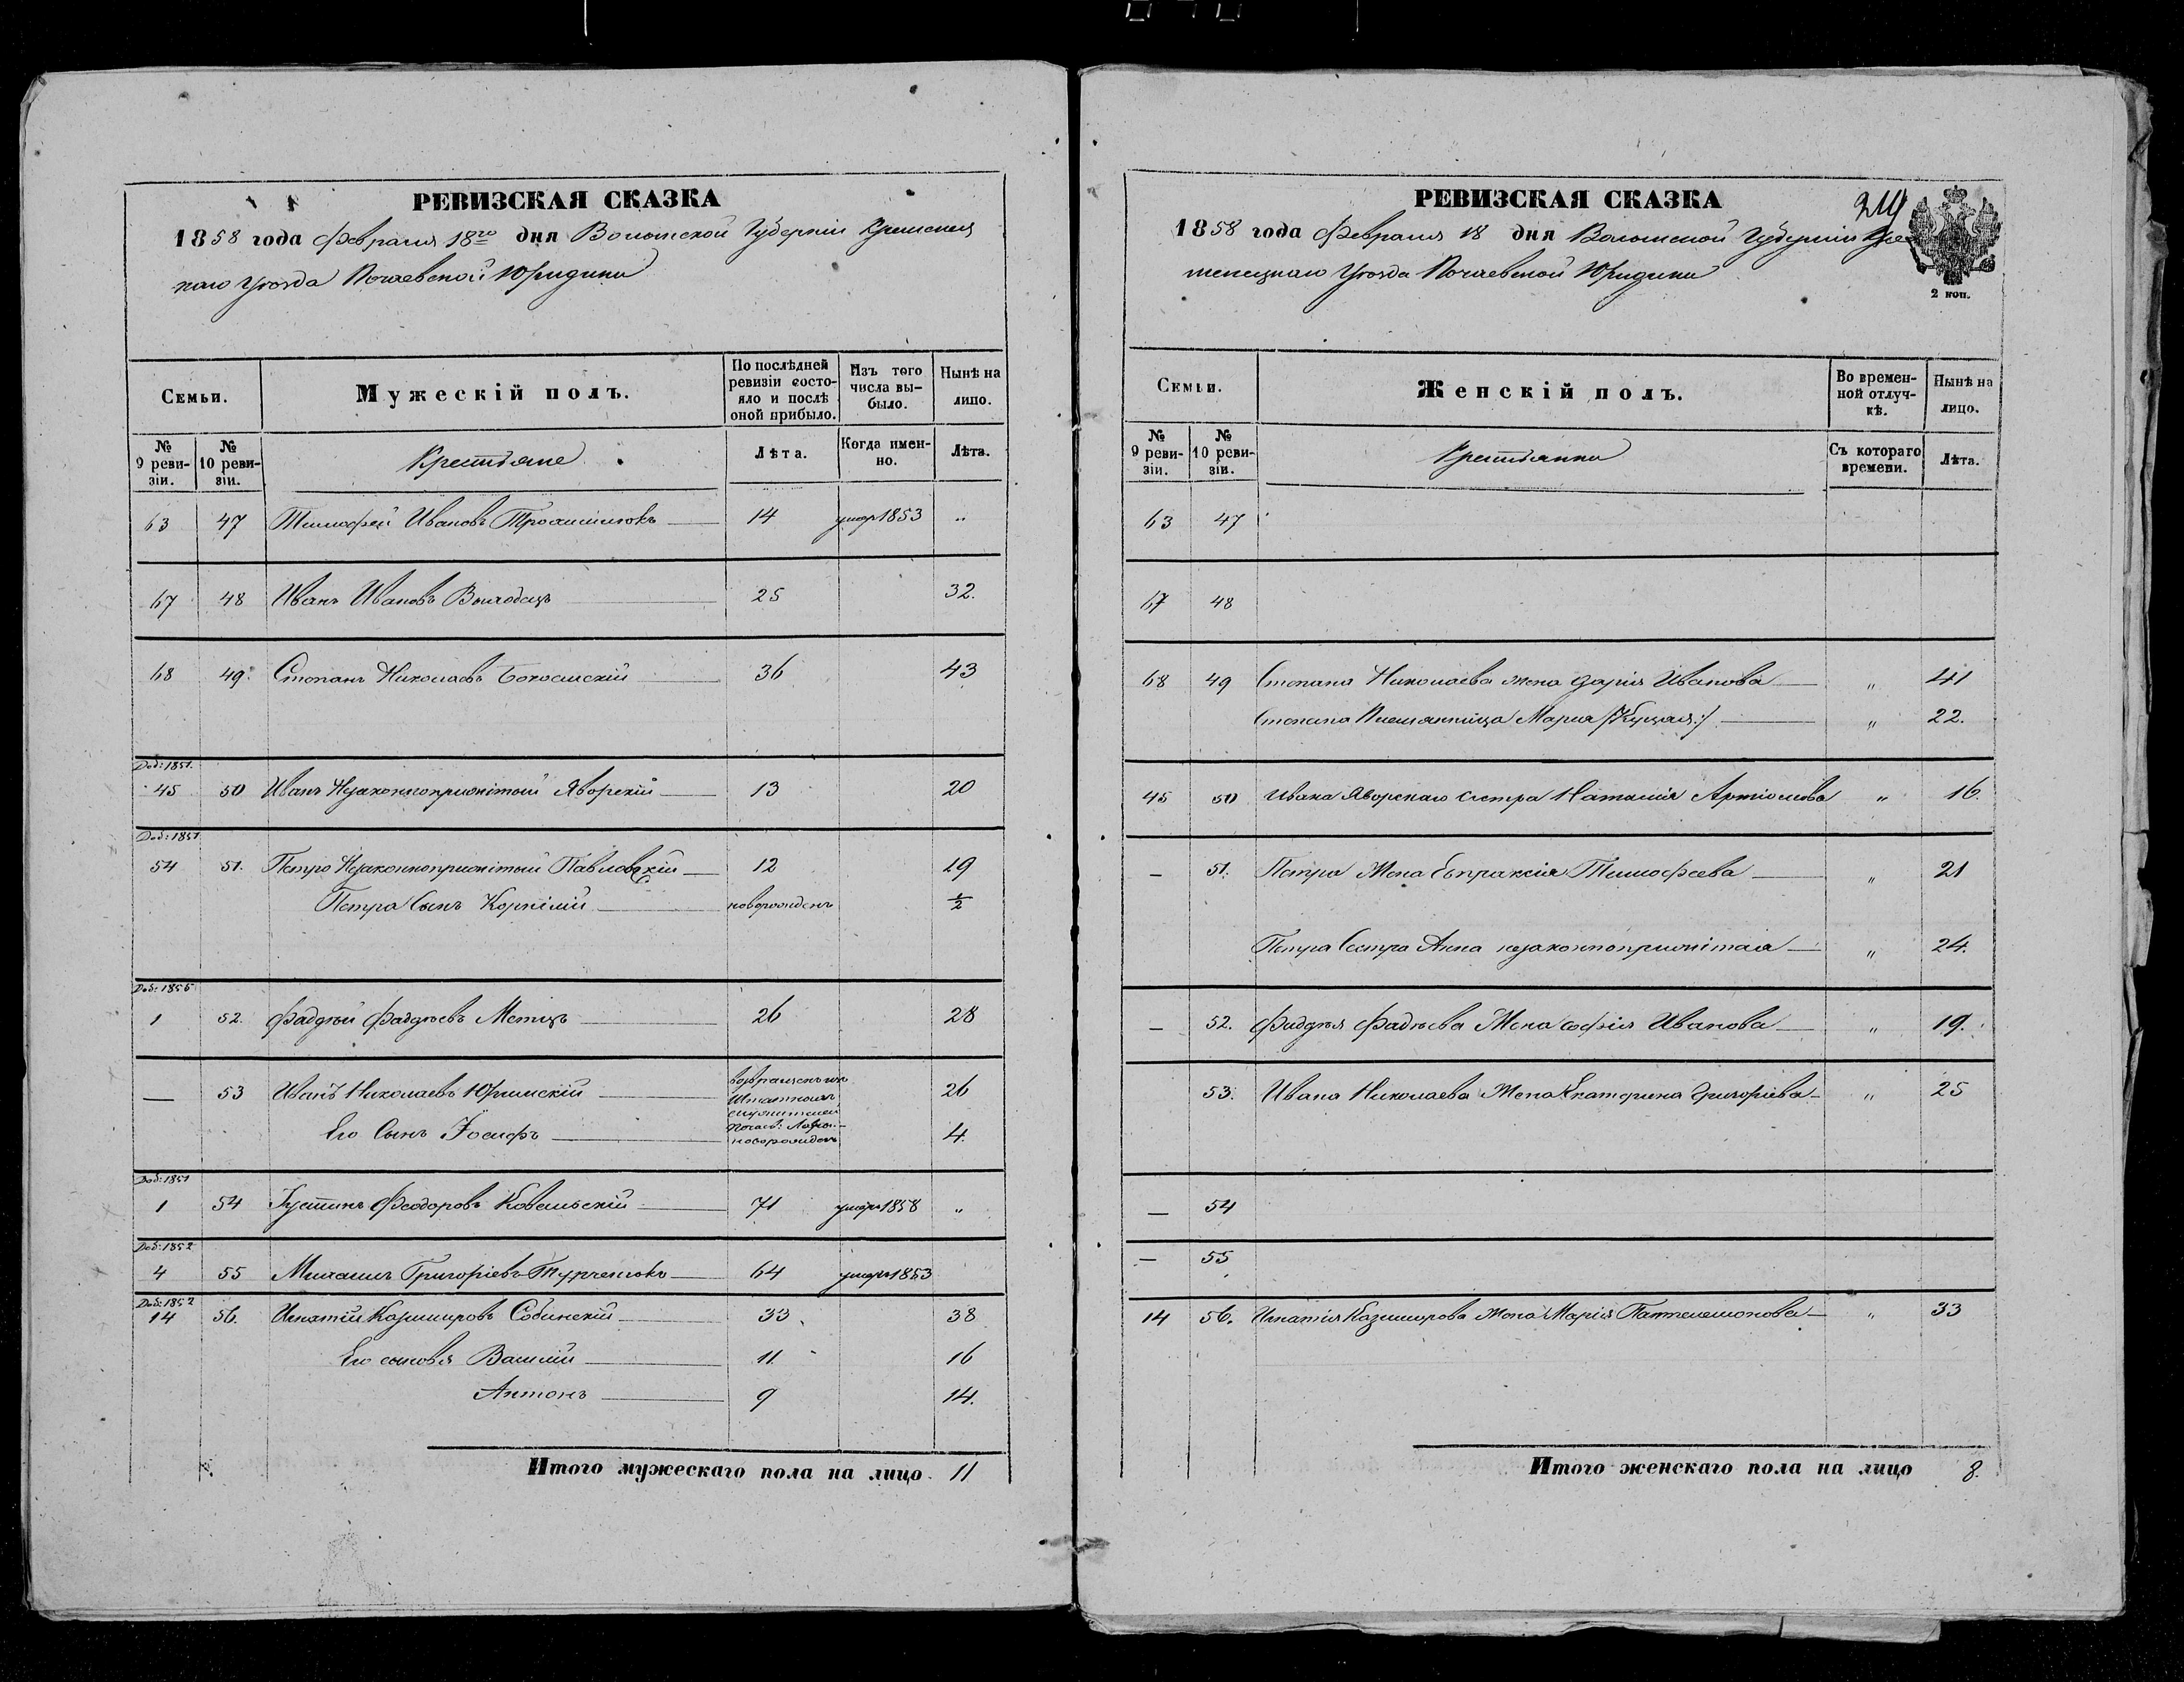 РЕВИЗСКАЯ СКАЗКА
1858 года Февраля 18го дня Волынской Губерніи Кременец
каго Уѣзда Почаевской Юридики
Семьи.
Мужескій полъ.
По послѣдней ревизіи состояло и послѣ оной прибыло.
Изъ того числа выбыло.
Нынѣ на лицо.
№ 9 ревизіи.
№ 10 ревизіи.
Крестьяне
Лѣта.
Когда именно.
Лѣта.
63 47 Тимофей Ивановъ 14 умеръ 1853 "
67 48 Иванъ Ивановъ 25 32.
68 49. Степанъ Николаевъ 36 43
Доб: 1851.
45 50 Иванъ Незаконноприжитый Яворскій 13 20
Доб: 1851
54 51. Петро Незаконноприжитый Павловскій 12 19
Петра Сынъ Корнілій новорожденъ ½
Доб: 1856
1 52. Фаддѣй Фаддѣевъ 26 28
— 53 Иванъ Николаевъ возвращенъ изъ 26
Штатныхъ
служителей
Почаев: Лавры
Его Сынъ Іосифъ новорожденъ 4.
Доб: 1851
1 54 Іустинъ Феодоровъ Ковальскій 71 умеръ 1858 "
Доб: 1852
4 55 Михаилъ Григоріевъ 64 умеръ 1853
Доб: 1852
14 56. Игнатій Казиміровъ Собинскій 33. 38
Его сыновья Василій 11. 16
Антонъ 9 14.
Итого мужескаго пола на лицо. 11
РЕВИЗСКАЯ СКАЗКА
214
1858 года Февраля 18 дня Волынской Губерніи Кре
менецкаго Уѣзда Почаевской Юридики
2 коп.
Семьи.
Женскій полъ.
Во временной отлучкѣ.
Нынѣ на лицо.
№ 9 ревизіи.
№ 10 ревизіи.
Крестьянки
Съ котораго времени.
Лѣта.
63 47
67 48
68 49 Степана Николаева жена Дарія Иванова " 41
Степана Племянница Марія " 22.
45 50 Ивана Яворскаго сестра Наталія Артіомова " 16.
— 51. Петра Жена Евпраксія Тимофеева " 21
Петра Сестра Анна незаконноприжитая " 24.
— 52. Фаддѣя Фадѣева Жена Софія Иванова " 19.
53. Ивана Николаева Жена Екатерина Григоріева " 25
— 54
— 55
14 56. Игнатія Казимирова жена Марія Пантелемонова " 33
Итого женскаго пола на лицо 8.